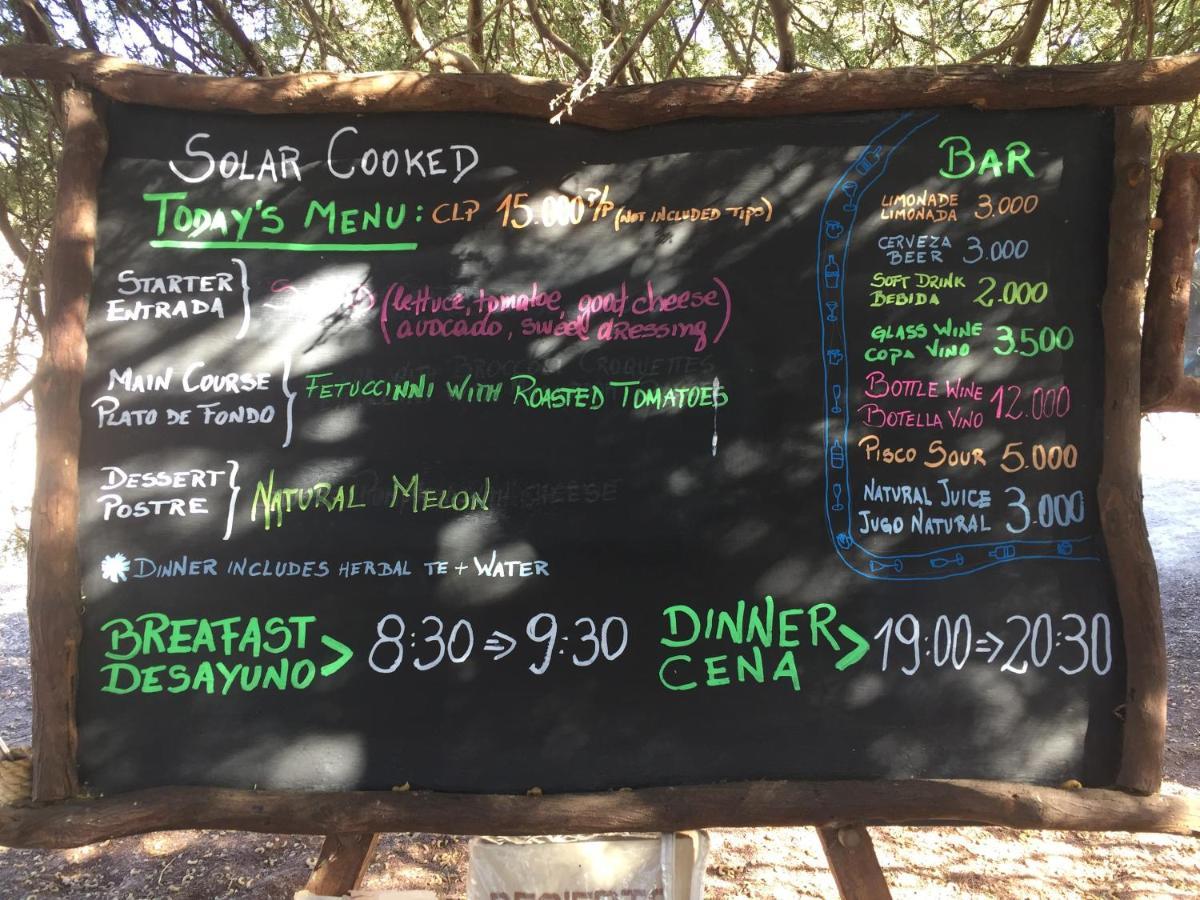 SOLAR COOKED
TODAY'S MENU: CLP 15.000 P/P (NOT INCLUDED TIPS)
STARTER
ENTRADA
(lettuce, tomatoe, goat cheese
avocado, sweet dressing)
BROCCOLI CROQUETTES
MAIN COURSE
PLATO DE FONDO
FETUCCINNI WITH ROASTED TOMATOES
DESSERT
POSTRE
NATURAL MELON
CHEESE
DINNER INCLUDES HERBAL TE + WATER
BREAFAST
DESAYUNO > 8:30 => 9:30
DINNER
CENA > 19:00 => 20:30
BAR
LIMONADE
LIMONADA 3.000
CERVEZA
BEER 3.000
SOFT DRINK
BEBIDA 2.000
GLASS WINE
COPA VINO 3.500
BOTTLE WINE
BOTELLA VINO 12.000
PISCO SOUR 5.000
NATURAL JUICE
JUGO NATURAL 3.000